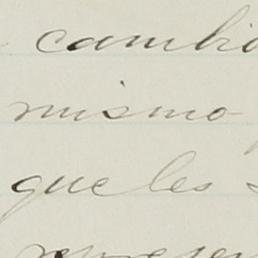 cambio
mismo
que les